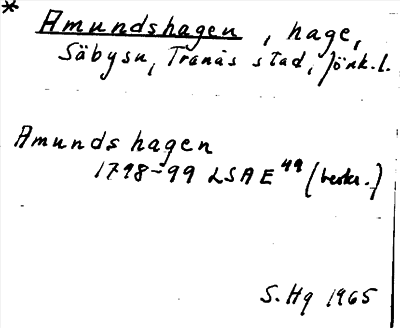 * Amundshagen, hage,
Säbysn, Tranås stad, Jönk.l.
Amundshagen
1798-99 LSA E 49 (beskr.)
S. Hg 1965